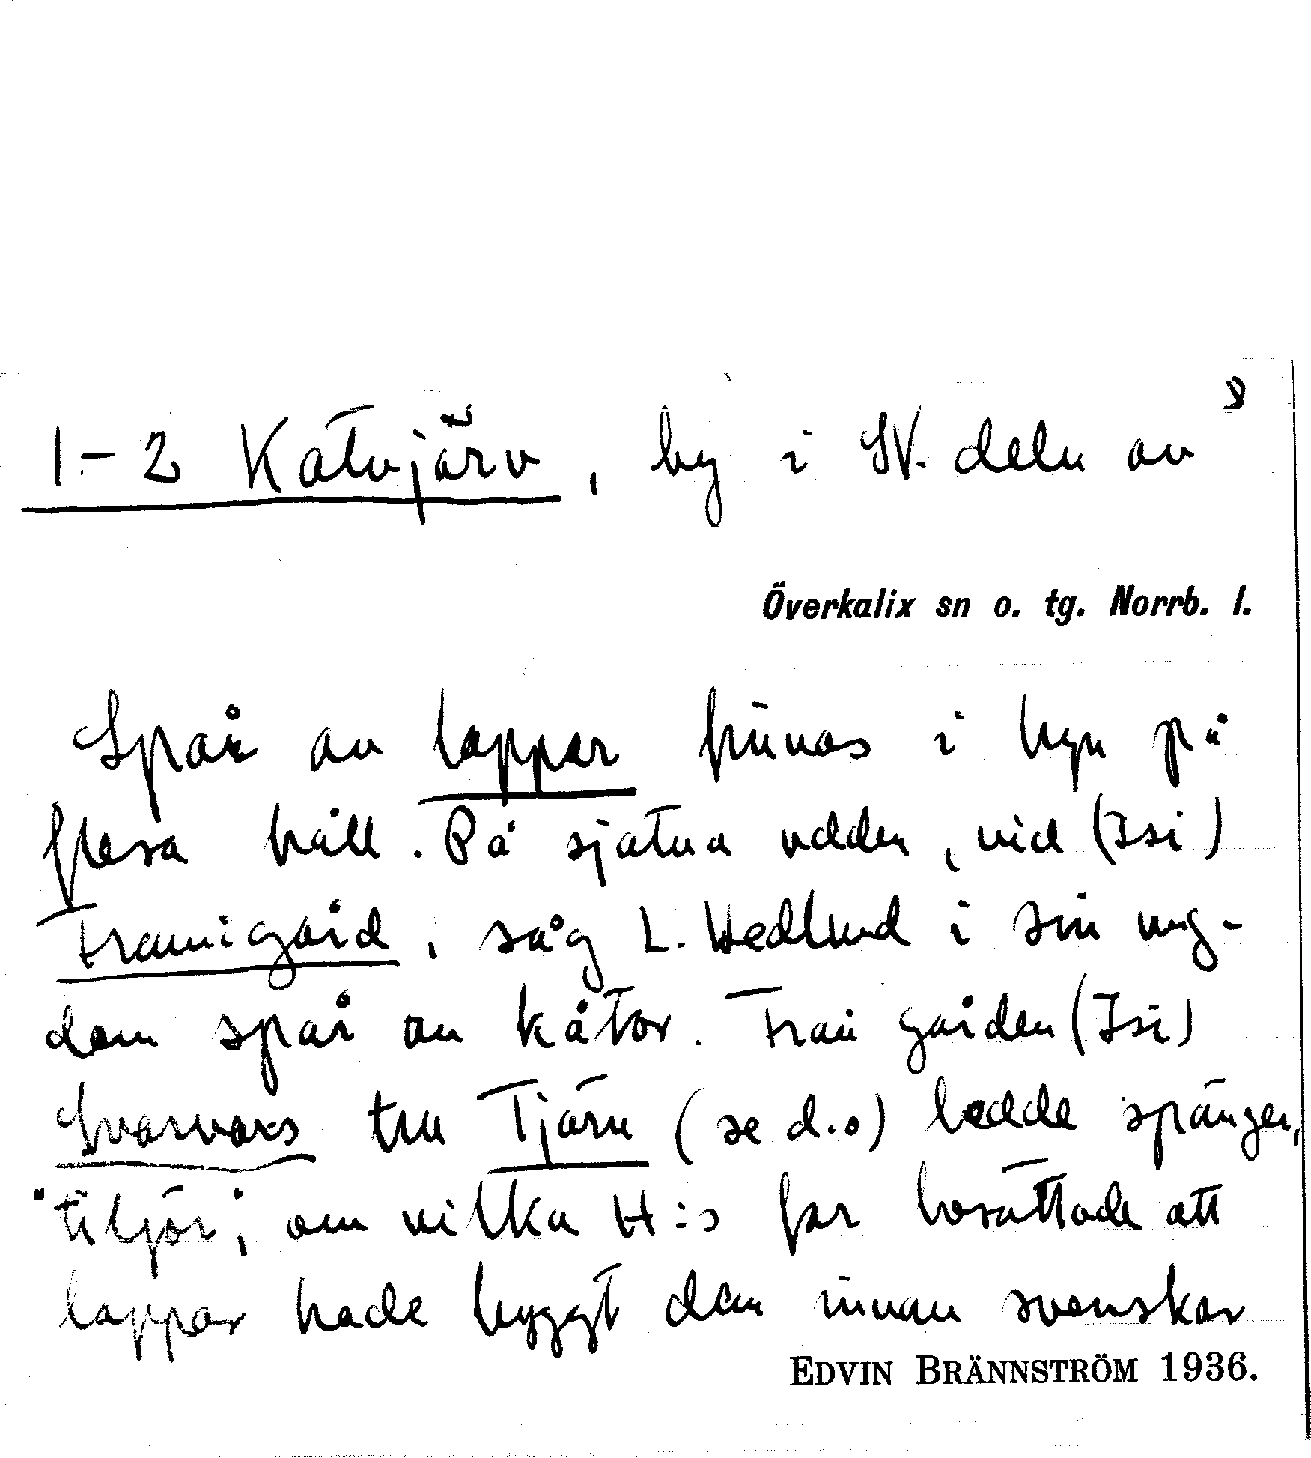 8
1-2 Kat̄vjärv, by i SV. deln av
Överkalix sn o. tg. Norrb. l.
Spår av lappar finnas i byn på
flera håll. På sjätna udden, vid (Isi)
Franigård, såg L. Hedlund i sin ung-
dom spår av kåtor. Från gården (Isi)
Svarvars tru Tjärn (se d.o) ledde spänger,
"tiljor", om vilka H:s far berättade att
lappar hade byggt dem innan svenskar
EDVIN BRÄNNSTRÖM 1936.